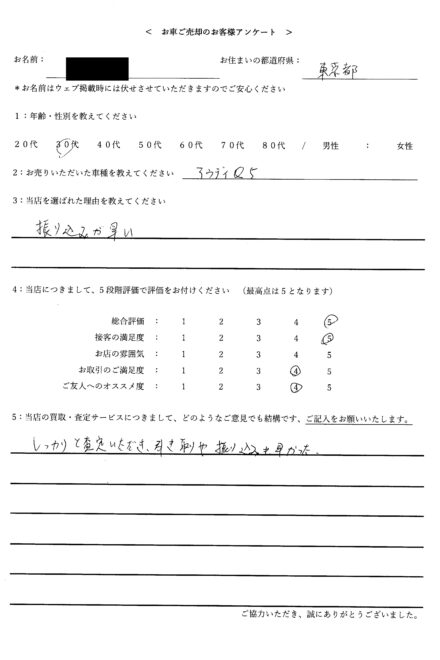 ＜　お車ご売却のお客様アンケート　＞
お名前：　お住まいの都道府県：　東京都
＊お名前はウェブ掲載時には伏せさせていただきますのでご安心ください
１：年齢・性別を教えてください
２０代　３０代　４０代　５０代　６０代　７０代　８０代　/　男性　：　女性
２：お売りいただいた車種を教えてください　アウディQ5
３：当店を選ばれた理由を教えてください
振り込みが早い
４：当店につきまして、５段階評価で評価をお付けください　（最高点は５となります）
総合評価　：　1　2　3　4　5
接客の満足度　：　1　2　3　4　5
お店の雰囲気　：　1　2　3　4　5
お取引のご満足度　：　1　2　3　4　5
ご友人へのオススメ度　：　1　2　3　4　5
５：当店の買取・査定サービスにつきまして、どのようなご意見でも結構です、ご記入をお願いいたします。
しっかりと査定いただき、引き取りや振り込みも早かった。
ご協力いただき、誠にありがとうございました。